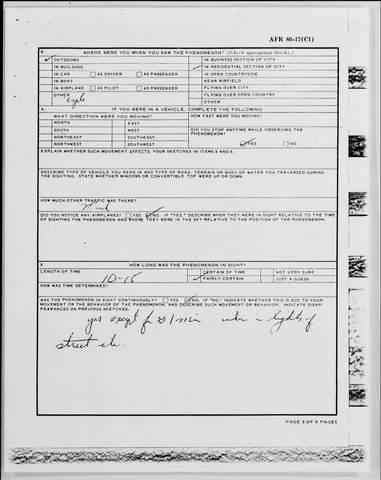 AFR 80-17(C1)
WHERE WERE YOU WHEN YOU SAW THE PHENOMENON? (Check appropriate blocks.)
OUTDOORS IN BUSINESS SECTION OF CITY
IN BUILDING IN RESIDENTIAL SECTION OF CITY
IN CAR AS DRIVER AS PASSENGER IN OPEN COUNTRYSIDE
IN BOAT NEAR AIRFIELD
IN AIRPLANE AS PILOT AS PASSENGER FLYING OVER CITY
OTHER FLYING OVER OPEN COUNTRY
OTHER
IF YOU WERE IN A VEHICLE, COMPLETE THE FOLLOWING
WHAT DIRECTION WERE YOU MOVING? HOW FAST WERE YOU MOVING?
NORTH EAST
SOUTH WEST DID YOU STOP ANYTIME WHILE OBSERVING THE
NORTHEAST SOUTHEAST PHENOMENON?
NORTHWEST SOUTHWEST YES NO
EXPLAIN WHETHER SUCH MOVEMENT AFFECTS YOUR SKETCHES IN ITEMS 5 AND 6.
DESCRIBE TYPE OF VEHICLE YOU WERE IN AND TYPE OF ROAD, TERRAIN OR BODY OF WATER YOU TRAVERSED DURING
THE SIGHTING. STATE WHETHER WINDOWS OR CONVERTIBLE TOP WERE UP OR DOWN.
HOW MUCH OTHER TRAFFIC WAS THERE?
DID YOU NOTICE ANY AIRPLANES? YES NO. IF "YES," DESCRIBE WHEN THEY WERE IN SIGHT RELATIVE TO THE TIME
OF SIGHTING THE PHENOMENON AND WHERE THEY WERE IN THE SKY RELATIVE TO THE POSITION OF THE PHENOMENON.
HOW LONG WAS THE PHENOMENON IN SIGHT?
LENGTH OF TIME CERTAIN OF TIME NOT VERY SURE
10-15 FAIRLY CERTAIN JUST A GUESS
HOW WAS TIME DETERMINED?
WAS THE PHENOMENON IN SIGHT CONTINUOUSLY? YES NO. IF "NO," INDICATE WHETHER THIS IS DUE TO YOUR
MOVEMENT OR THE BEHAVIOR OF THE PHENOMENON, AND DESCRIBE SUCH MOVEMENT OR BEHAVIOR. INDICATE DISAP-
PEARANCES ON PREVIOUS SKETCHES.
yes except for ≈ 1 min. when lights of
street
PAGE 3 OF 5 PAGES